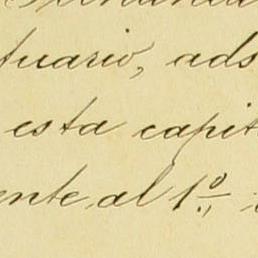 tuario, ads
esta capit
ente al 1º